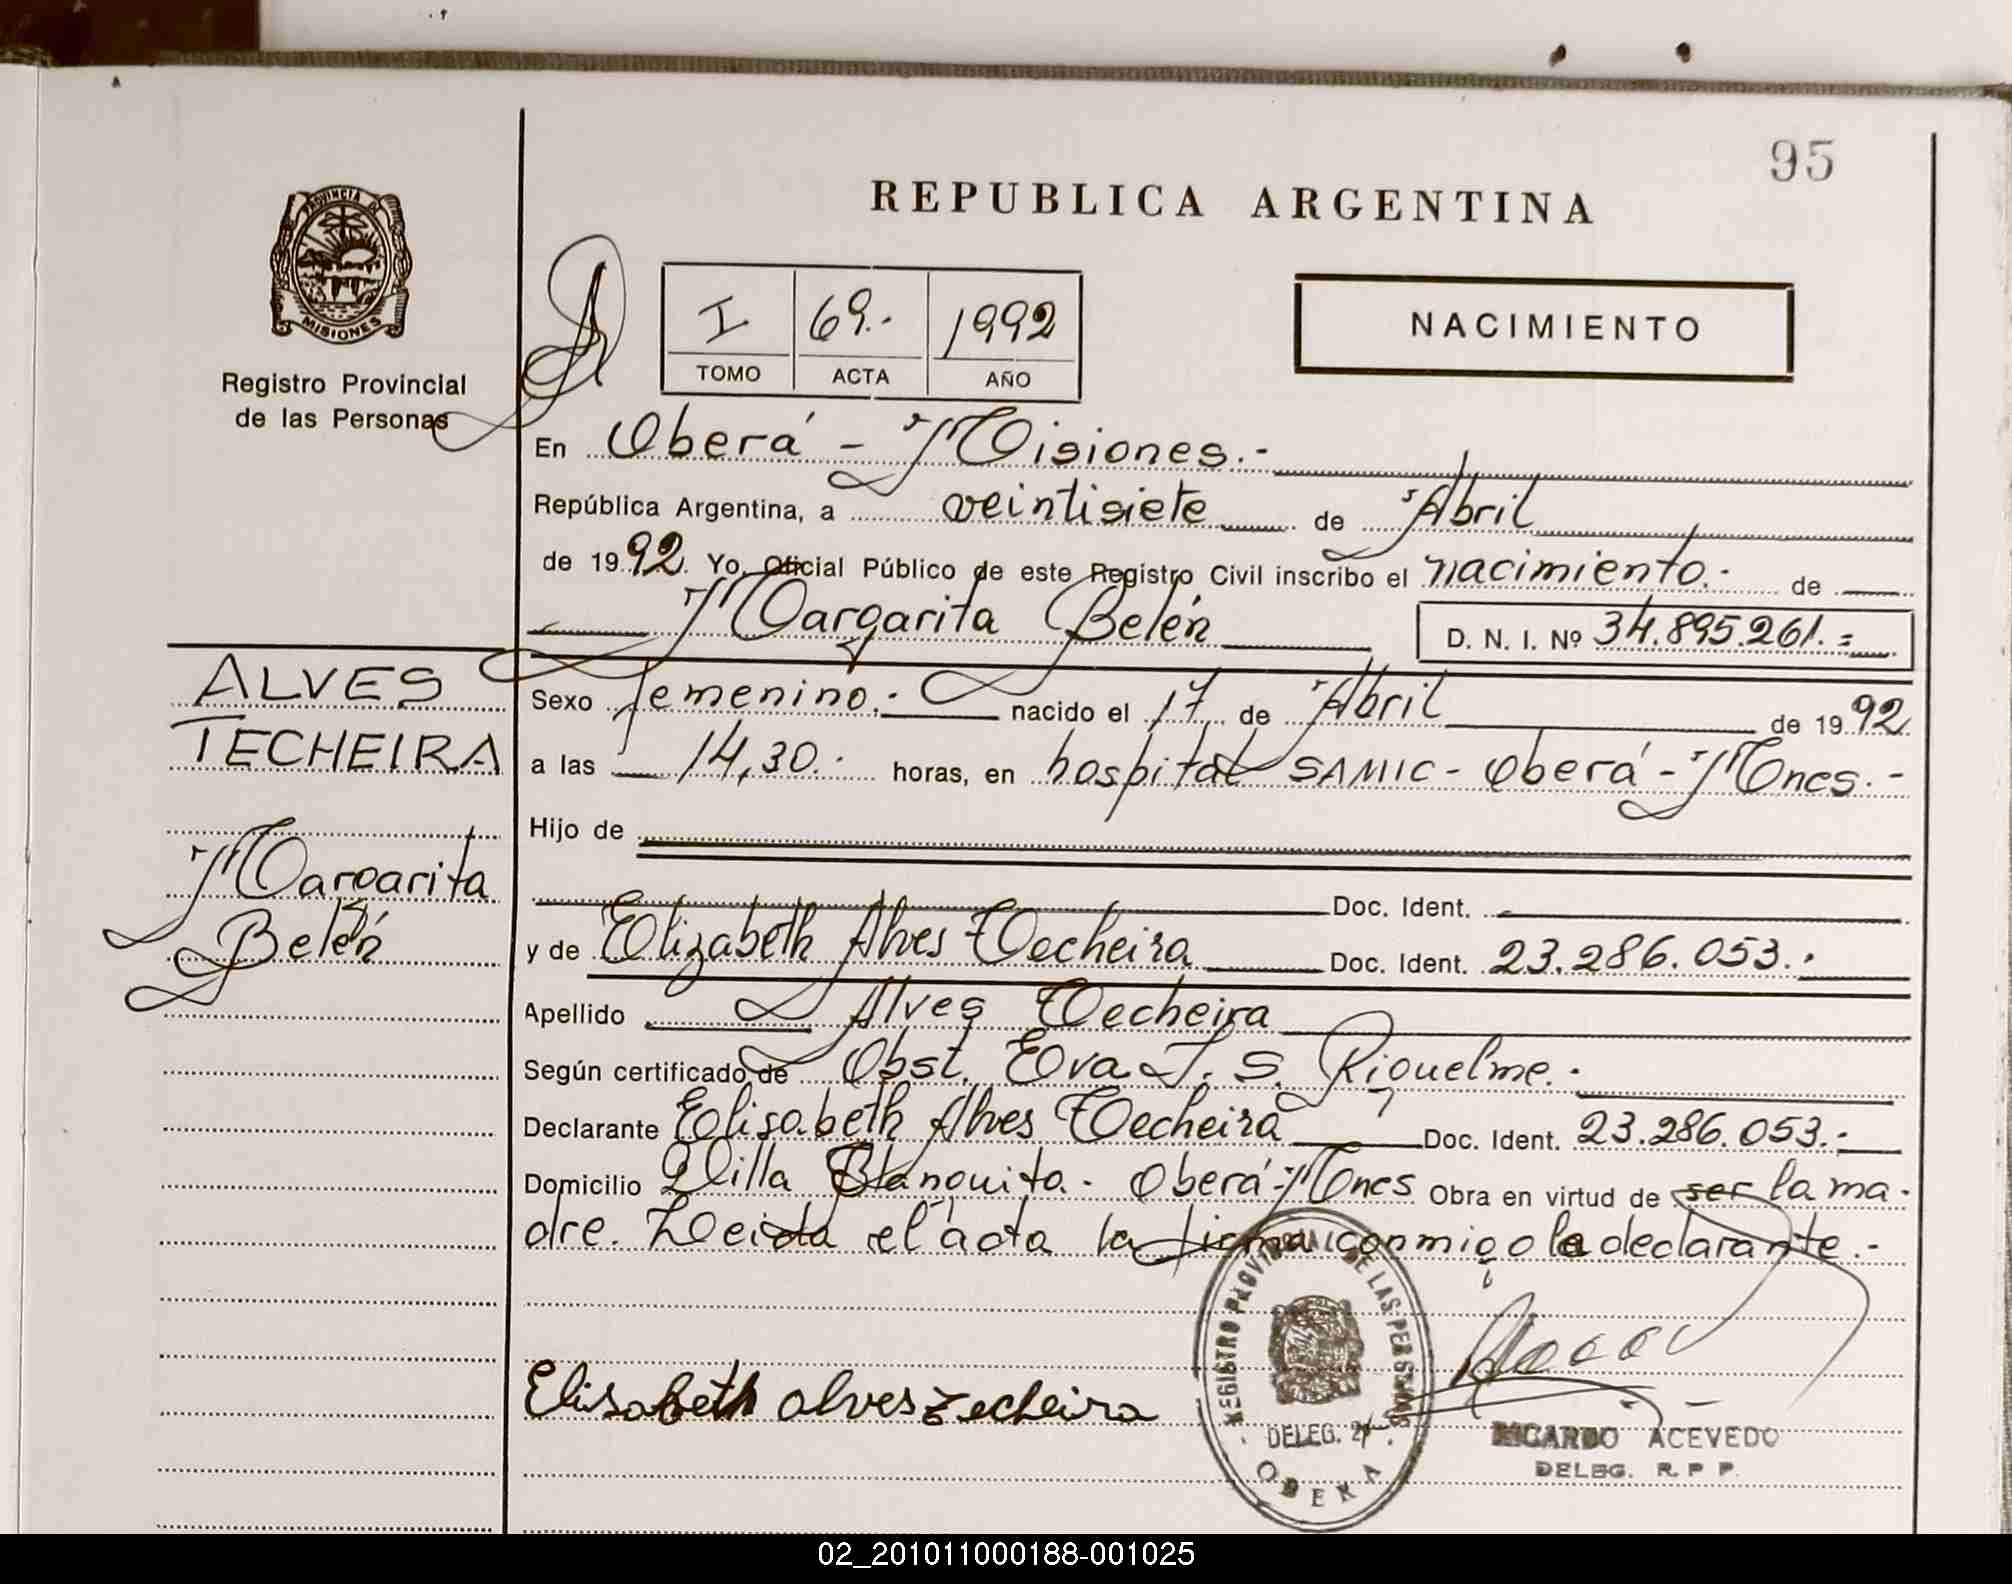 95
REPUBLICA ARGENTINA
PROVINCIA DE
MISIONES
Registro Provincial
de las Personas
I 69.- 1992
TOMO ACTA AÑO
NACIMIENTO
En Oberá - Misiones.-
República Argentina, a veintisiete de Abril
de 1992. Yo, Oficial Público de este Registro Civil inscribo el nacimiento.- de
Margarita Belén D. N. I. Nº 34.895.261.=
ALVES
TECHEIRA
Margarita
Belén
Sexo femenino.- nacido el 17 de Abril de 1992
a las 14,30.- horas, en hospital SAMIC - Oberá - Mnes.-
Hijo de
Doc. Ident.
y de Elizabeth Alves Techeira Doc. Ident. 23.286.053.-
Apellido Alves Techeira
Según certificado de Obst. Eva J. S. Riquelme.-
Declarante Elisabeth Alves Techeira Doc. Ident. 23.286.053.-
Domicilio Villa Blanquita - Oberá - Mnes Obra en virtud de ser la ma-
dre. Leida el acta la firma conmigo la declarante.-
Elisabeth alves techeira
REGISTRO PROVINCIAL DE LAS PERSONAS
DELEG.
OBERA
RICARDO ACEVEDO
DELEG. R. P P.
02_201011000188-001025